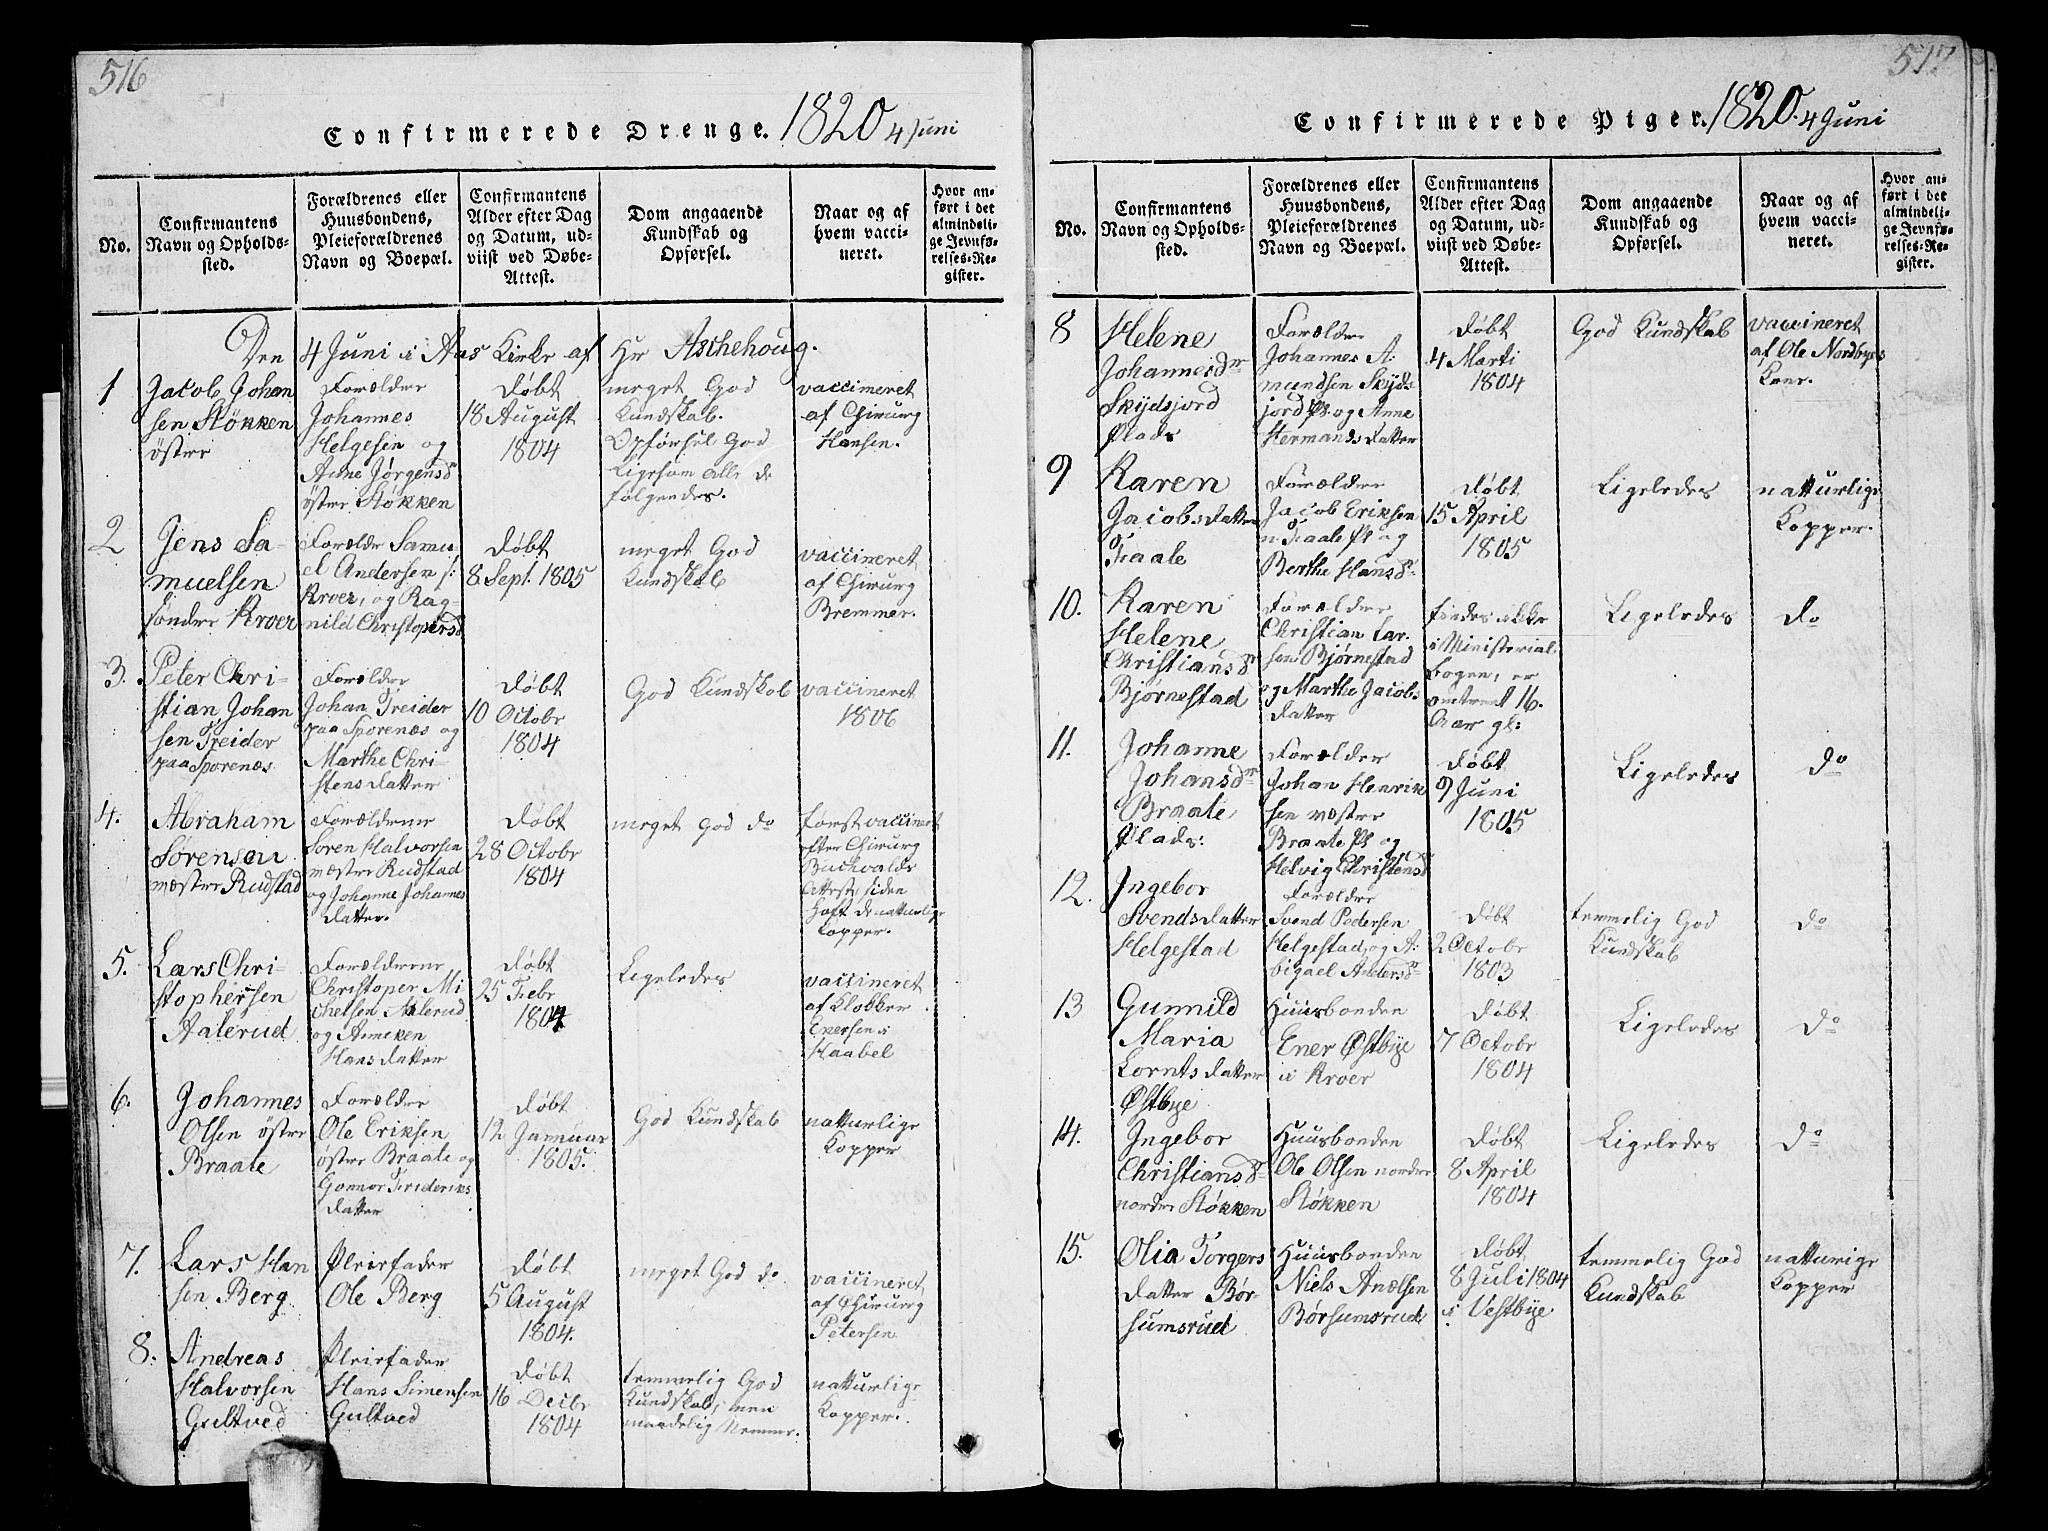 516
Confirmerede Drenge. 1820 4 Juni
No.
Confirmantens
Navn og Opholds-
sted.
Forældrenes eller
Huusbondens,
Pleieforældrenes
Navn og Boepæl.
Confirmantens
Alder efter Dag
og Datum, ud-
viist ved Døbe-
Attest.
Dom angaaende
Kundskab og
Opførsel.
Naar og af
hvem vacci-
neret.
Hvor an-
ført i det
almindeli-
ge Jevnfø-
relses-Re-
gister.
Den 4 Juni i Aas Kirke af Hr Aschehoug.
1
Jacob Johan
sen Støkken
østre
Forældre
Johannes
Helgesen og
Anne Jørgensdr
østre Støkken
døbt
18 August
1804
meget God
Kundskab.
Opførsel God
Ligesom alle de
følgendes.
vaccineret
af Chirurg
Hansen.
2
Jens Sa-
muelsen
søndre Kroer
Forældre Samu-
el Andersen s:
Kroer, og Rag-
nild Christophersdr
Døbt
8 Sept. 1805
meget God
Kundskab
vaccineret
af Chirurg
Bremmer.
3.
Peter Chri-
stian Johan
sen Treider
paa Sporenæs
Forældre
Johan Treider
paa Sporenæs og
Marthe Chri-
stensdatter
døbt
10 Octobr
1804
God Kundskab
vaccineret
1806
4.
Abraham
Sørensen
mæstre Rudstad
Forældrene
Søren Halvorsen
mæstre Rudstad
og Johanne Johannes
datter.
Døbt
28 Octobr
1804
meget god do
først vaccineret
efter Chirurg
Buchvalds
Attest, siden
haft de naturlige
Kopper.
5.
Lars Chri-
stophersen
Aalerud
Forældrene
Christoper Mi
chelsen Aalerud
og Anneken
Hansdatter
døbt
25 Febr
1804
Ligeledes
vaccineret
af Klokker
Enersen i
Haabel
6.
Johannes
Olsen østre
Braate
Forældre
Ole Eriksen
østre Braate og
Gonnor Frederiks
datter
døbt
12 Januar
1805.
God Kundskab
natturlige
Kopper
7.
Lars Han
sen Berg
Pleiefader
Ole Berg
døbt
5 August
1804.
meget God do
vaccineret
af Chirurg
Petersen
8.
Andreas
Halvorsen
Gultved
Pleiefader
Hans Simensen
Gultved
døbt
16 Decbr
1804
temmelig God
Kundskab, men
maadelig Nemme.
natturlige
Kopper.
517
Confirmerede Piger. 1820. 4 Juni
No.
Confirmantens
Navn og Opholds-
sted.
Forældrenes eller
Huusbondens,
Pleieforældrenes
Navn og Boepæl.
Confirmantens
Alder efter Dag
og Datum, ud-
viist ved Døbe-
Attest.
Dom angaaende
Kundskab og
Opførsel.
Naar og af
hvem vacci-
neret.
Hvor an-
ført i det
almindeli-
ge Jevnfø-
relses-Re-
gister.
8
Helene
Johannesdr
Skydsjord
Plads
Forældre
Johannes A:
mundsen Skyds
jord Pl og Anne
Hermandsdatter
døbt
4 Marti
1804
God Kundskab
vaccineret
af Ole Nordbyes
Kone.
9
Karen
Jacobsdatter
Kaale
Forældre
Jacob Eriksen
Kaale Pl og
Berthe Hansdr
døbt
15 April
1805
Ligeledes
natturlige
Kopper.
10.
Karen
Helene
Christiansdr
Bjørnestad
Forældre
Christian Lar-
sen Bjørnestad
og Marthe Jacobs
datter
findes ikke
i Ministerial
bogen, er
omtrent 16.
Aar gl:
Ligeledes
do
11.
Johanne
Johansdr
Braate
Plads:
Forældre
Johan Henrik
sen mæstre
Braate Pl og
Helvig Christensdr
døbt
9 Juni
1805
Ligeledes
do
12.
Ingebor
Svendsdatter
Helgestad
Forældre
Svend Pedersen
Helgestad og A:
bigael Andersdr
døbt
2 Octobr
1803
temmelig God
Kundskab
do
13
Gunnild
Maria
Lorntsdatter
Østbye
Huusbonden
Ener Østbye
i Kroer
døbt
7 Octobr
1804
Ligeledes
do
14.
Ingebor
Christiansdr
nordre Støkken
Huusbonden
Ole Olsen nordre
Støkken
døbt
8 April
1804
Ligeledes
do
15.
Olia Torgers
datter Bør-
sumsrud
Huusbonden
Niels Anelsen
Børsumsrud
døbt
8 Juli 1804
i Vestbye
temmelig God
Kundskab
natturige
Kopper